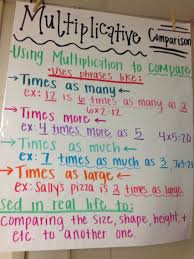 Multiplicative Comparison
•Using Multiplication to Compare
•Uses phrases like:
→Times as many←
ex: 12 is 6 times as many as 2
6x2=12
→Times more←
ex: 4 times more as 5 4x5=20
→Times as much←
ex: 7 times as much as 3, 7x3=21
→Times as large←
ex: Sally's pizza is 3 times as large.
sed in real life to:
comparing the size, shape, height, +
etc. to another one.